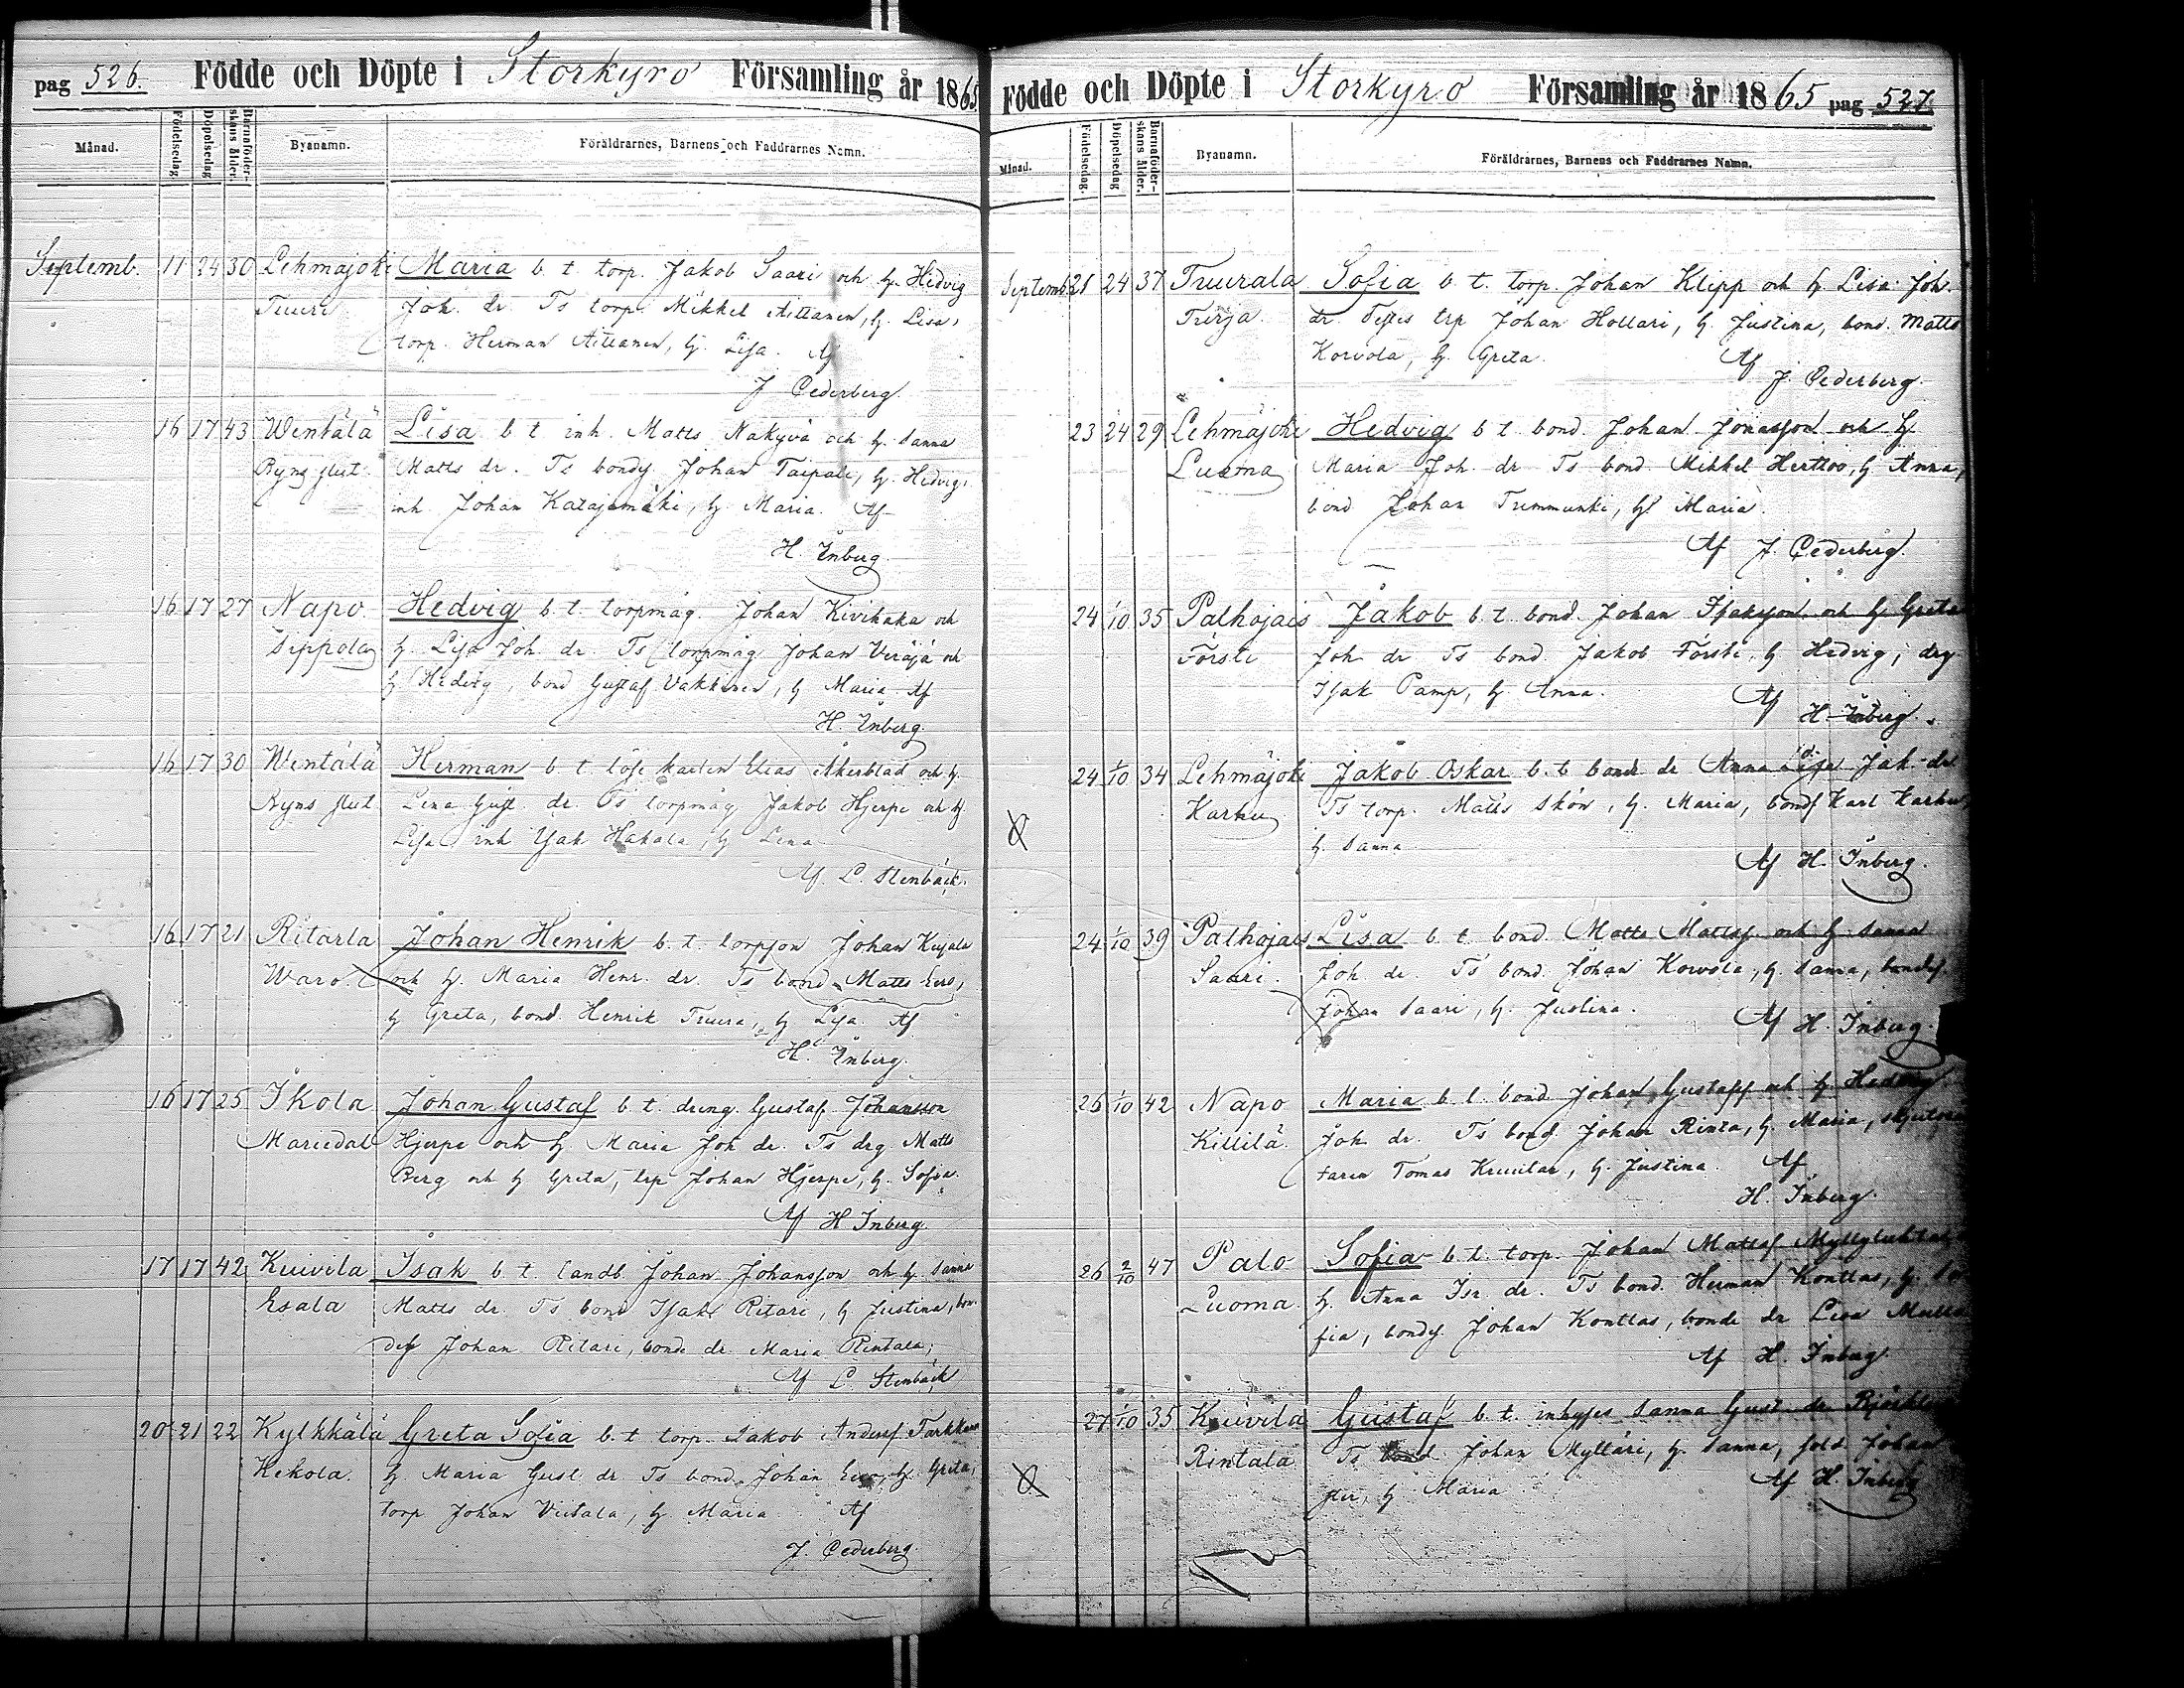 pag 526. Födde och Döpte i Storkyro Församling år 1865
Månad. Födelsedag. Döpelsedag. Barnaföderskans ålder. Byanamn. Föräldrarnes, Barnens och Faddrarnes Namn.
Septemb. 11 24 30 Lehmäjoki Maria b. t. torp. Jakob Saari och h. Hedvig
Tuuri Joh. dr. Ts torp. Mikkel Aittanen, h. Lisa,
torp. Herman Aittanen, h. Lisa. Af
J Cederberg.
16 17 43 Wentälä Lisa b t inh. Matts Nakyvä och h. Sanna
Byns slut. Matts dr. Ts bonds. Johan Taipale, h. Hedvig,
inh Johan Katajamäki, h. Maria. Af
H. Inberg.
16 17 27 Napo Hedvig b. t. torpmåg. Johan Kivihaka och
Sippola h. Lisa Joh. dr. Ts torpmåg Johan Veräjä och
h Hedvig, bond Gustaf Vakkinen, h Maria Af
H. Inberg.
16 17 30 Wentälä Herman b. t. löse karlen Elias Åkerblad och h.
Byns slut. Lena Gust. dr. Ts torpmåg Jakob Hjerpe och h
Lisa inh Isak Hakala, h Lena
Af. L. Stenbäck.
16 17 21 Ritarla Johan Henrik b. t. torpson Johan Kujala
Waro. och h. Maria Henr. dr. Ts bond. Matts Eero,
h Greta, bond. Henrik Tuura, h Lisa. Af
H. Inberg.
16 17 25 Ikola Johan Gustaf b. t. dräng. Gustaf Johansson
Mariedal Hjerpe och h. Maria Joh dr. Ts drg Matts
Berg och h Greta, trp Johan Hjerpe, h. Sofia.
Af H Inberg.
17 17 42 Kuivila Isak b. t. landb Johan Johansson och h. Sanna
Esala Matts dr. Ts bond Isak Ritari, h Justina, bon-
des Johan Ritari, bonde dr. Maria Rintala,
Af L. Stenbäck
20 21 22 Kylkkälä Greta Sofia b. t torp. Jakob Andersf
Kekola. h Maria Gust dr Ts bond. Johan Eero, h Greta,
torp Johan Viitala, h. Maria Af
J. Cederberg.
Födde och Döpte i Storkyro Församling år 1865 pag 527.
Månad. Födelsedag. Döpelsedag Barnaföderskans ålder. Byanamn. Föräldrarnes, Barnens och Faddrarnes Namn.
Septemb. 21 24 37 Tuurala Sofia b. t. torp. Johan Klipp och h Lisa Joh.
dr. Testes trp Johan Hollari, h. Justina, bond. Matts
Korvola, h. Greta. Af
J. Cederberg.
23 24 29 Lehmäjoki Hedvig b t bond. Johan Jonasson och h
Luoma Maria Joh. dr Ts bond. Mikkel Herttoo, h Anna,
bond Johan Tummunki, h Maria.
Af J. Cederberg.
24 1/10 35 Palhojais Jakob b. t. bond. Johan Isaksson och h Greta
Försti Joh. dr Ts bond. Jakob Försti, h Hedvig, drg
Isak Pamp, h Anna. Af
H. Inberg.
24 1/10 34 Lehmäjoki Jakob Oskar b. t bonde dr Anna Lisa Jak dr
Karhu Ts torp. Matts Skön, h. Maria, bonds Karl Karhu,
h Sanna
Af H. Inberg.
24 1/10 39 Palhojais Lisa b. t. bond. Matts Mattss. och h Sanna
Saari. Joh. dr. Ts bond. Johan Korvola, h. Sanna, bondes.
Johan Saari, h. Justina. Af H. Inberg.
26 1/10 42 Napo Maria b. t. bond Johan Gustafss och h Hedvig
Killilä Joh. dr. Ts bond. Johan Rinta, h. Maria,
Tomas h. Justina. Af
H. Inberg.
26 2/10 47 Palo Sofia b. t. torp. Johan Mattsf
Luoma. h. Anna Isr. dr. Ts bond. Herman Konttas, h. So-
fia, bondes. Johan Konttas, bonde dr Lisa
Af H. Inberg.
27 1/10 35 Kuivila Gustaf b. t. inhyses Sanna Gust dr
Rintala Ts bond Johan Myllari, h. Sanna, sold Johan
h Maria Af H. Inberg